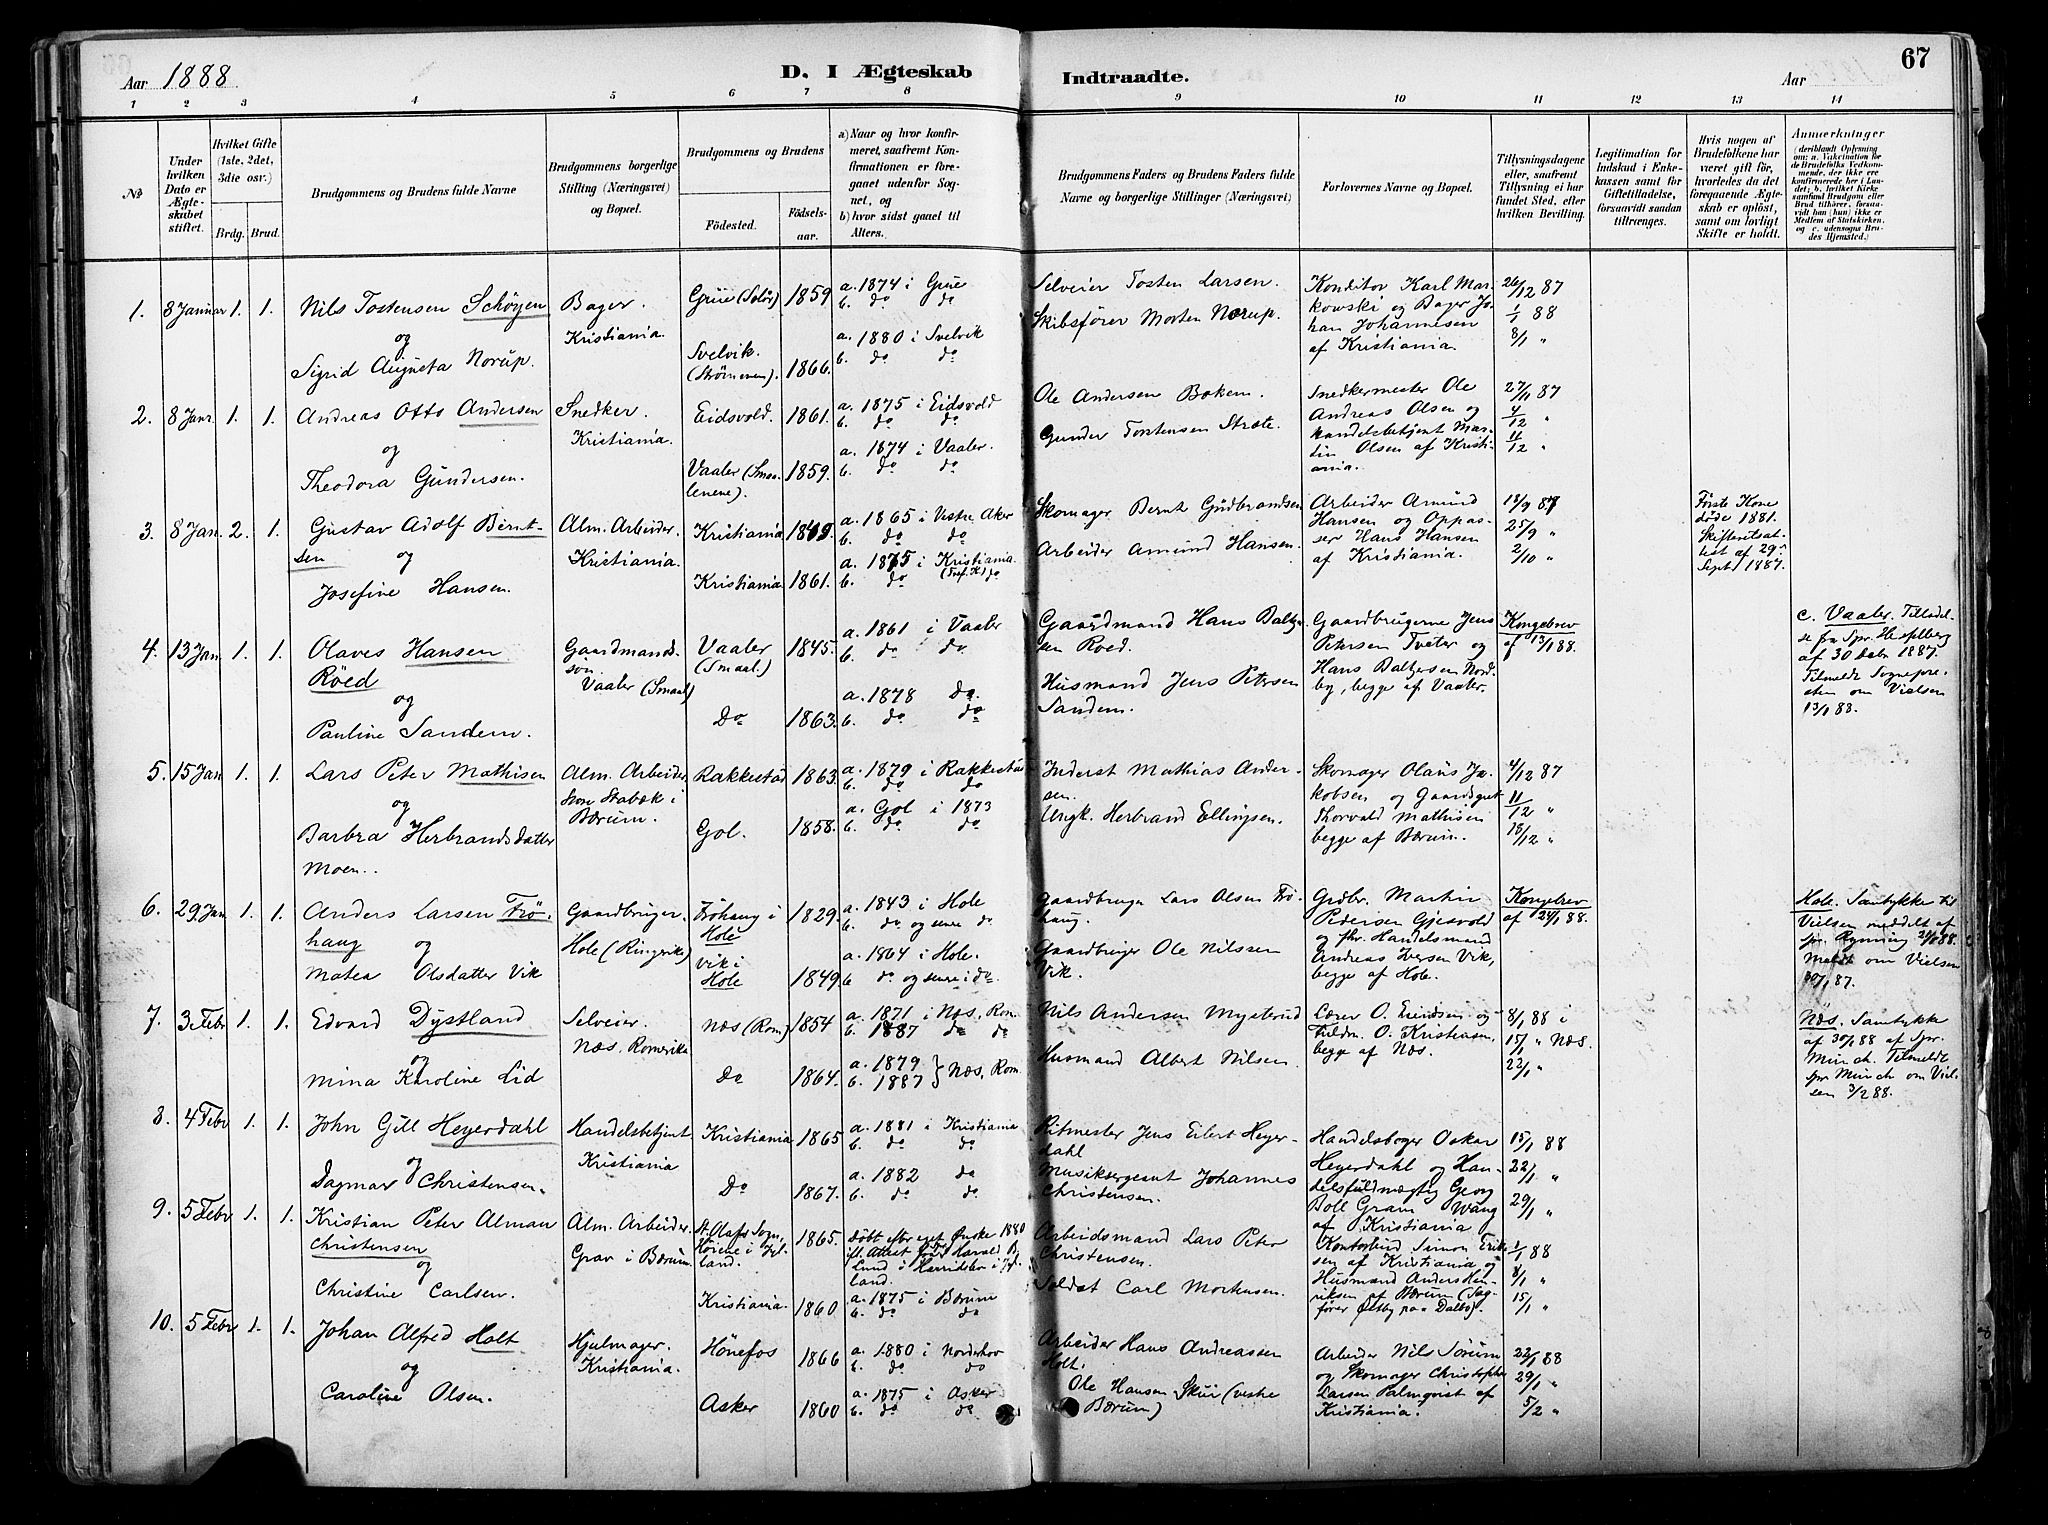 67
Aar 1888
D. I Ægteskab Indtraadte.
Aar
1 2 3 4 5 6 7 8 9 10 11 12 13 14
№
Under hvilken Dato er Ægteskabet stiftet.
Hvilket Gifte (1ste, 2det, 3die osv.)
Brdg. Brud.
Brudgommens og Brudens fulde Navne
Brudgommens borgerlige Stilling (Næringsvei) og Bopæl.
Brudgommens og Brudens
Födested. Födselsaar.
a) Naar og hvor konfirmeret, saafremt Konfirmationen er foregaaet udenfor Sognet, og
b) hvor sidst gaaet til Alters.
Brudgommens Faders og Brudens Faders fulde Navne og borgerlige Stillinger (Næringsvei)
Forlovernes Navne og Bopæl.
Tillysningsdagene eller, saafremt Tillysning ei har fundet Sted, efter hvilken Bevilling.
Legitimation for Indskud i Enkekassen samt for Giftetilladelse, forsaavidt saadan tiltrænges.
Hvis nogen af Brudefolkene har været gift för, hvorledes da det foregaaende Ægteskab er oplöst, samt om lovligt Skifte er holdt.
Anmærkninger (deriblandt Oplysning om: a. Vakcination for de Brudefolks Vedkommende, der ikke ere konfirmerede her i Landet; b. hvilket Kirkesamfund Brudgom eller Brud tilhörer, forsaavidt han (hun) ikke er Medlem af Statskirken, og c. udensogns Brudes Hjemsted.
1. 8 Januar 1. 1.
Nils Tostensen Schøyen
og
Sigrid Augusta Norup.
Bager.
Kristiania.
Grue (Solør) 1859
Svelvik.
(Strømmen). 1866.
a. 1874 i Grue
b. do do
a. 1880 i Svelvik
b. do do
Selveier Tosten Larsen.
Skibsfører Morten Norup.
Konditor Karl Mar-
kowski og Bager Jo-
han Johannesen
af Kristiania.
26/12 87
1/1 88
8/1 "
2. 8 Janr. 1. 1.
Andreas Otto Andersen
og
Theodora Gundersen.
Snedker.
Kristiania.
Eidsvold. 1861.
Vaaler (Smaa-
lenene). 1859.
a. 1875 i Eidsvold
b. do do
a. 1874 i Vaaler.
b. do do
Ole Andersen Boken.
Gunder Torstensen Strøte.
Snedkermester Ole
Andreas Olsen og
Handelsbetjent Mar-
tin Olsen af Kristi-
ania.
27/11 87
4/12 "
11/12 "
3. 8 Jan. 2. 1.
Gustav Adolf Bernt-
sen
og
Josefine Hansen.
Alm. Arbeider.
Kristiania.
Kristiania 1849.
Kristiania 1861.
a. 1865 i Vestre Aker
b. do do
a. 1875 i Kristiania.
b. do (Tref. K.) do
Skomager Bernt Gudbrandsen
Arbeider Amund Hansen.
Arbeider Amund
Hansen og Oppas-
ser Hans Hansen
af Kristiania.
18/9 87
25/9 "
2/10 "
Første Kone
døde 1881.
Skifteretsat-
test af 29
Septr. 1887.
4. 13 Jan. 1. 1.
Olaves Hansen
Röed
og
Pauline Sandem.
Gaardmands-
søn
Vaaler (Smaal)
Vaaler
(Smaal.) 1845.
Do 1863.
a. 1861 i Vaaler
b. do do
a. 1878 Do.
b. do do
Gaardmand Hans Baltz-
sen Roed.
Husmand Jens Petersen
Sandem.
Gaardbrugerne Jens
Petersen Tveter og
Hans Baltzersen Nord-
by, begge af Vaaler.
Kongebrev
af 13/1 88.
c. Vaaler. Tilladel-
se fra Spr. Hesselberg
af 30 Debr. 1887.
Tilmeldt Sognepre-
sten om Vielsen
13/1 88.
5. 15 Jan 1. 1.
Lars Peter Mathisen
og
Barbra Herbrandsdatter
Moen.
Alm. Arbeider
Store Stabæk i
Bærum.
Rakkestad 1863.
Gol. 1858.
a. 1879 i Rakkestad
b. do do
a. Gol i 1873
b. do do
Inderst Mathias Ander-
sen.
Ungk. Herbrand Ellingsen.
Skomager Olaus Ja-
kobsen og Gaardsgut
Thorvald Mathisen
begge af Bærum.
4/12 87
11/12 "
18/12 "
6. 29 Jan 1. 1.
Anders Larsen Frö-
haug og
Matea Olsdatter Vik
Gaardbruger.
Hole (Ringerike)
Fröhaug i
Hole 1829.
Vik i
Hole 1849.
a. 1843 i Hole
b. do og senere do
a. 1864 i Hole.
b do og senere i do.
Gaardbruger Lars Olsen Frö-
haug.
Gaardbruger Ole Nilssen
Vik.
Grdbr. Martin
Pedersen Gjesvold
og fhv. Handelsmand
Andreas Iversen Vik,
begge af Hole.
Kongebrev
af 24/1 88.
Hole. Samtykke til
Vielsen meddelt af
spr. Rynning 21/1 88.
Meldt om Vielsen
30/1 87.
7. 3 Febr 1. 1.
Edvard Dystland
og
Mina Karoline Lid
Selveier.
Næs, Romerike
Næs (Rom) 1854
Do 1864.
a. 1871 i Næs, Rom.
b. 1887 do do
a. 1879
b. 1887 } Næs, Rom.
Nils Andersen Mystrud
Husmand Albert Nilsen.
Lærer O. Evensen og
Fuldm. O. Kristensen,
begge af Næs.
8/1 88 i
15/1 " Næs.
22/1 "
Næs. Samtykke
af 30/1 88 af Spr.
Munch. Tilmeldt
spr. Munch om Viel-
sen 3/2 88.
8. 4 Febr 1. 1.
John Gill Heyerdahl
og
Dagmar Christensen.
Handelsbetjent
Kristiania
Kristiania 1865
Do 1867.
a. 1881 i Kristiania
b. do do
a. 1882 do
b. do do
Ritmester Jens Eilert Heyer-
dahl
Musiksergeant Johannes
Christensen.
Handelsborger Oskar
Heyerdahl og Han-
delsfuldmægtig Georg
Boll Gram Wang
af Kristiania
15/1 88
22/1 "
29/1 "
9. 5 Febr 1. 1.
Kristian Peter Alman
Christensen
og
Christine Carlsen.
Alm. Arbeider.
Grav i Bærum.
St. Olafs Sogn,
i Jyl-
land. 1865.
Kristiania. 1860
Døbt efter eget Ønske 1880
fl. Attest fra Harald B.
Lund i i Jyl-
land.
a. 1875 i Bærum
b. do do
Arbeidsmand Lars Peter
Christensen.
Soldat Carl Mortensen.
Kontorbud Simon Erik-
sen af Kristiania og
Husmand Anders Hen-
riksen af Bærum (Sag-
fører Østby paa Dalbo).
1/1 88
8/1 "
15/1 "
10. 5 Febr 1. 1.
Johan Alfred Holt
og
Caroline Olsen.
Hjulmager.
Kristiania.
Hönefos 1866
Asker 1860
a. 1880 i Norderhov
b. do do
a. 1875 i Asker
b. do do
Arbeider Hans Andreassen
Holt.
Ole Hansen Skui (vestre
Bærum)
Arbeider Nils Sörum
og Skomager Christopher
Larsen Palmqvist af
Kristiania.
22/1 88
29/1 "
5/2 "